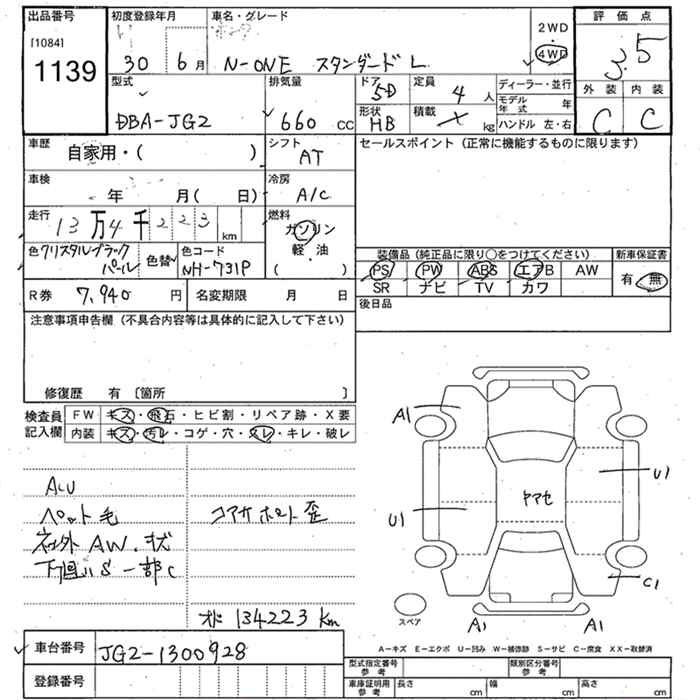 出品番号
[1084]
1139
初度登録年月
30 6 月
車名・グレード
ホンダ
N-ONE スタンダード L
2WD
4WD
評価点
3.5
外装 内装
C C
型式
DBA-JG2
排気量
660 cc
ドア 5D
定員 4 人
形状 HB
積載 × kg
ディーラー・並行
モデル年式 年
ハンドル 左・右
車歴
自家用・( )
シフト
AT
セールスポイント (正常に機能するものに限ります)
車検
年 月( 日)
冷房
A/C
走行
13万4千223 km
燃料
ガソリン
軽・油
( )
色 クリスタルブラックパール
色替
色コード
NH-731P
装備品 (純正品に限り○をつけてください)
新車保証書
PS PW ABS エアB AW
SR ナビ TV カワ
有・無
R券 7,940 円
名変期限 月 日
後日品
注意事項申告欄 (不具合内容等は具体的に記入して下さい)
修復歴 有 [箇所 ]
検査員記入欄
FW キズ・飛石・ヒビ割・リペア跡・X要
内装 キズ・汚レ・コゲ・穴・スレ・キレ・破レ
ペット毛
社外AW.状
下廻りS 一部C
コアサポート歪
134223 km
A1
U1
ヤマセ
U1
C1
スペア
A1 A1
A-キズ E-エクボ U-凹み W-補修跡 S-サビ C-腐食 XX-取替済
車台番号
JG2-1300928
登録番号
型式指定番号 参考
類別区分番号 参考
車庫証明用 参考
長さ cm 幅 cm 高さ cm